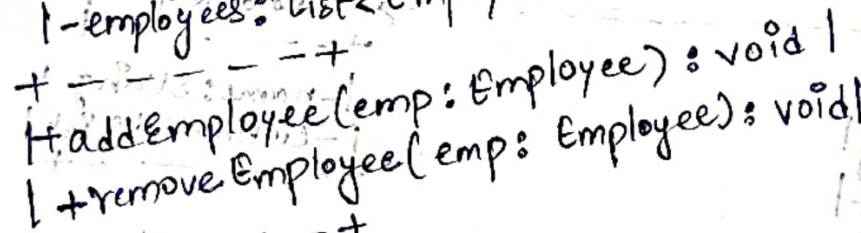 |-employees: List<
+ - - - - - - +
|+addEmployee(emp: Employee) : void |
| +removeEmployee(emp: Employee): void|
+